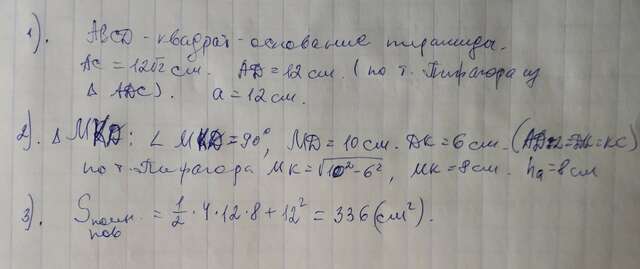 1). ABCD - квадрат - основание пирамиды.
AC = 12√2 см. AD = 12 см. (по т. Пифагора из
Δ ADC). a = 12 см.
2). Δ MKD: ∠ MKD = 90°, MD = 10 см. DK = 6 см. (AD:2 = DK = KC)
по т. Пифагора MK = √10² - 6², MK = 8 см. hₐ = 8 см
3). Sполн. пов = 1/2 · 4 · 12 · 8 + 12² = 336 (см²).